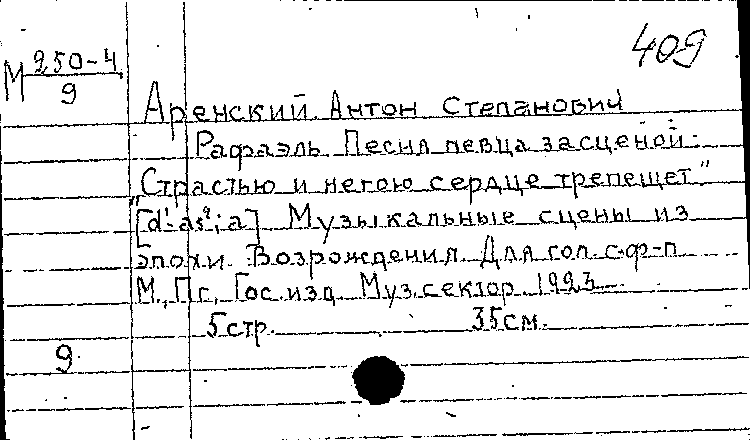 409
М 250-4
9
Аренский Антон Степанович
Рафаэль Песня певца за сценой:
„Страстью и негою сердце трепещет"
[d¹-as²; a] Музыкальные сцены из
эпохи Возрождения. Для гол. с ф-п
М., Пг., Гос. изд. Муз. сектор 1923
5 стр. 35 см.
9